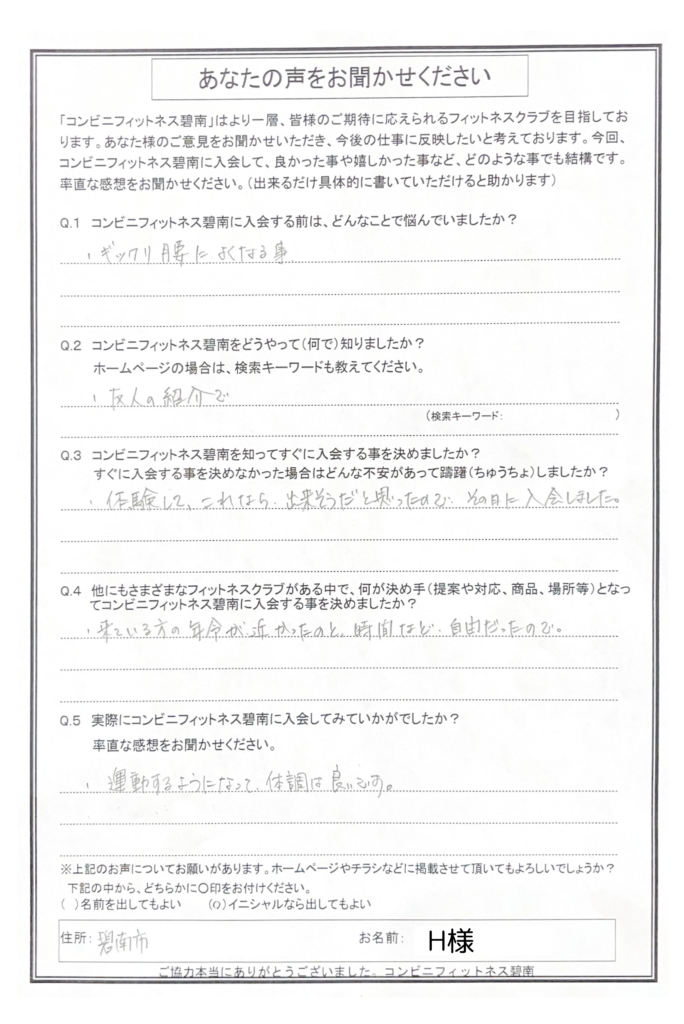 あなたの声をお聞かせください
「コンビニフィットネス碧南」はより一層、皆様のご期待に応えられるフィットネスクラブを目指してお
ります。あなた様のご意見をお聞かせいただき、今後の仕事に反映したいと考えております。今回、
コンビニフィットネス碧南に入会して、良かった事や嬉しかった事など、どのような事でも結構です。
率直な感想をお聞かせください。(出来るだけ具体的に書いていただけると助かります)
Q.1 コンビニフィットネス碧南に入会する前は、どんなことで悩んでいましたか?
、ギックリ腰によくなる事
Q.2 コンビニフィットネス碧南をどうやって(何で)知りましたか?
ホームページの場合は、検索キーワードも教えてください。
、友人の紹介で
(検索キーワード: )
Q.3 コンビニフィットネス碧南を知ってすぐに入会する事を決めましたか?
すぐに入会する事を決めなかった場合はどんな不安があって躊躇(ちゅうちょ)しましたか?
、体験して、これなら、出来そうだと思ったので、その日に入会しました。
Q.4 他にもさまざまなフィットネスクラブがある中で、何が決め手(提案や対応、商品、場所等)となっ
てコンビニフィットネス碧南に入会する事を決めましたか?
、来ている方の年令が近かったのと、時間など、自由だったので。
Q.5 実際にコンビニフィットネス碧南に入会してみていかがでしたか?
率直な感想をお聞かせください。
、運動するようになって、体調は良いです。
※上記のお声についてお願いがあります。ホームページやチラシなどに掲載させて頂いてもよろしいでしょうか?
下記の中から、どちらかに〇印をお付けください。
( )名前を出してもよい (○)イニシャルなら出してもよい
住所: 碧南市 お名前: H様
ご協力本当にありがとうございました。コンビニフィットネス碧南